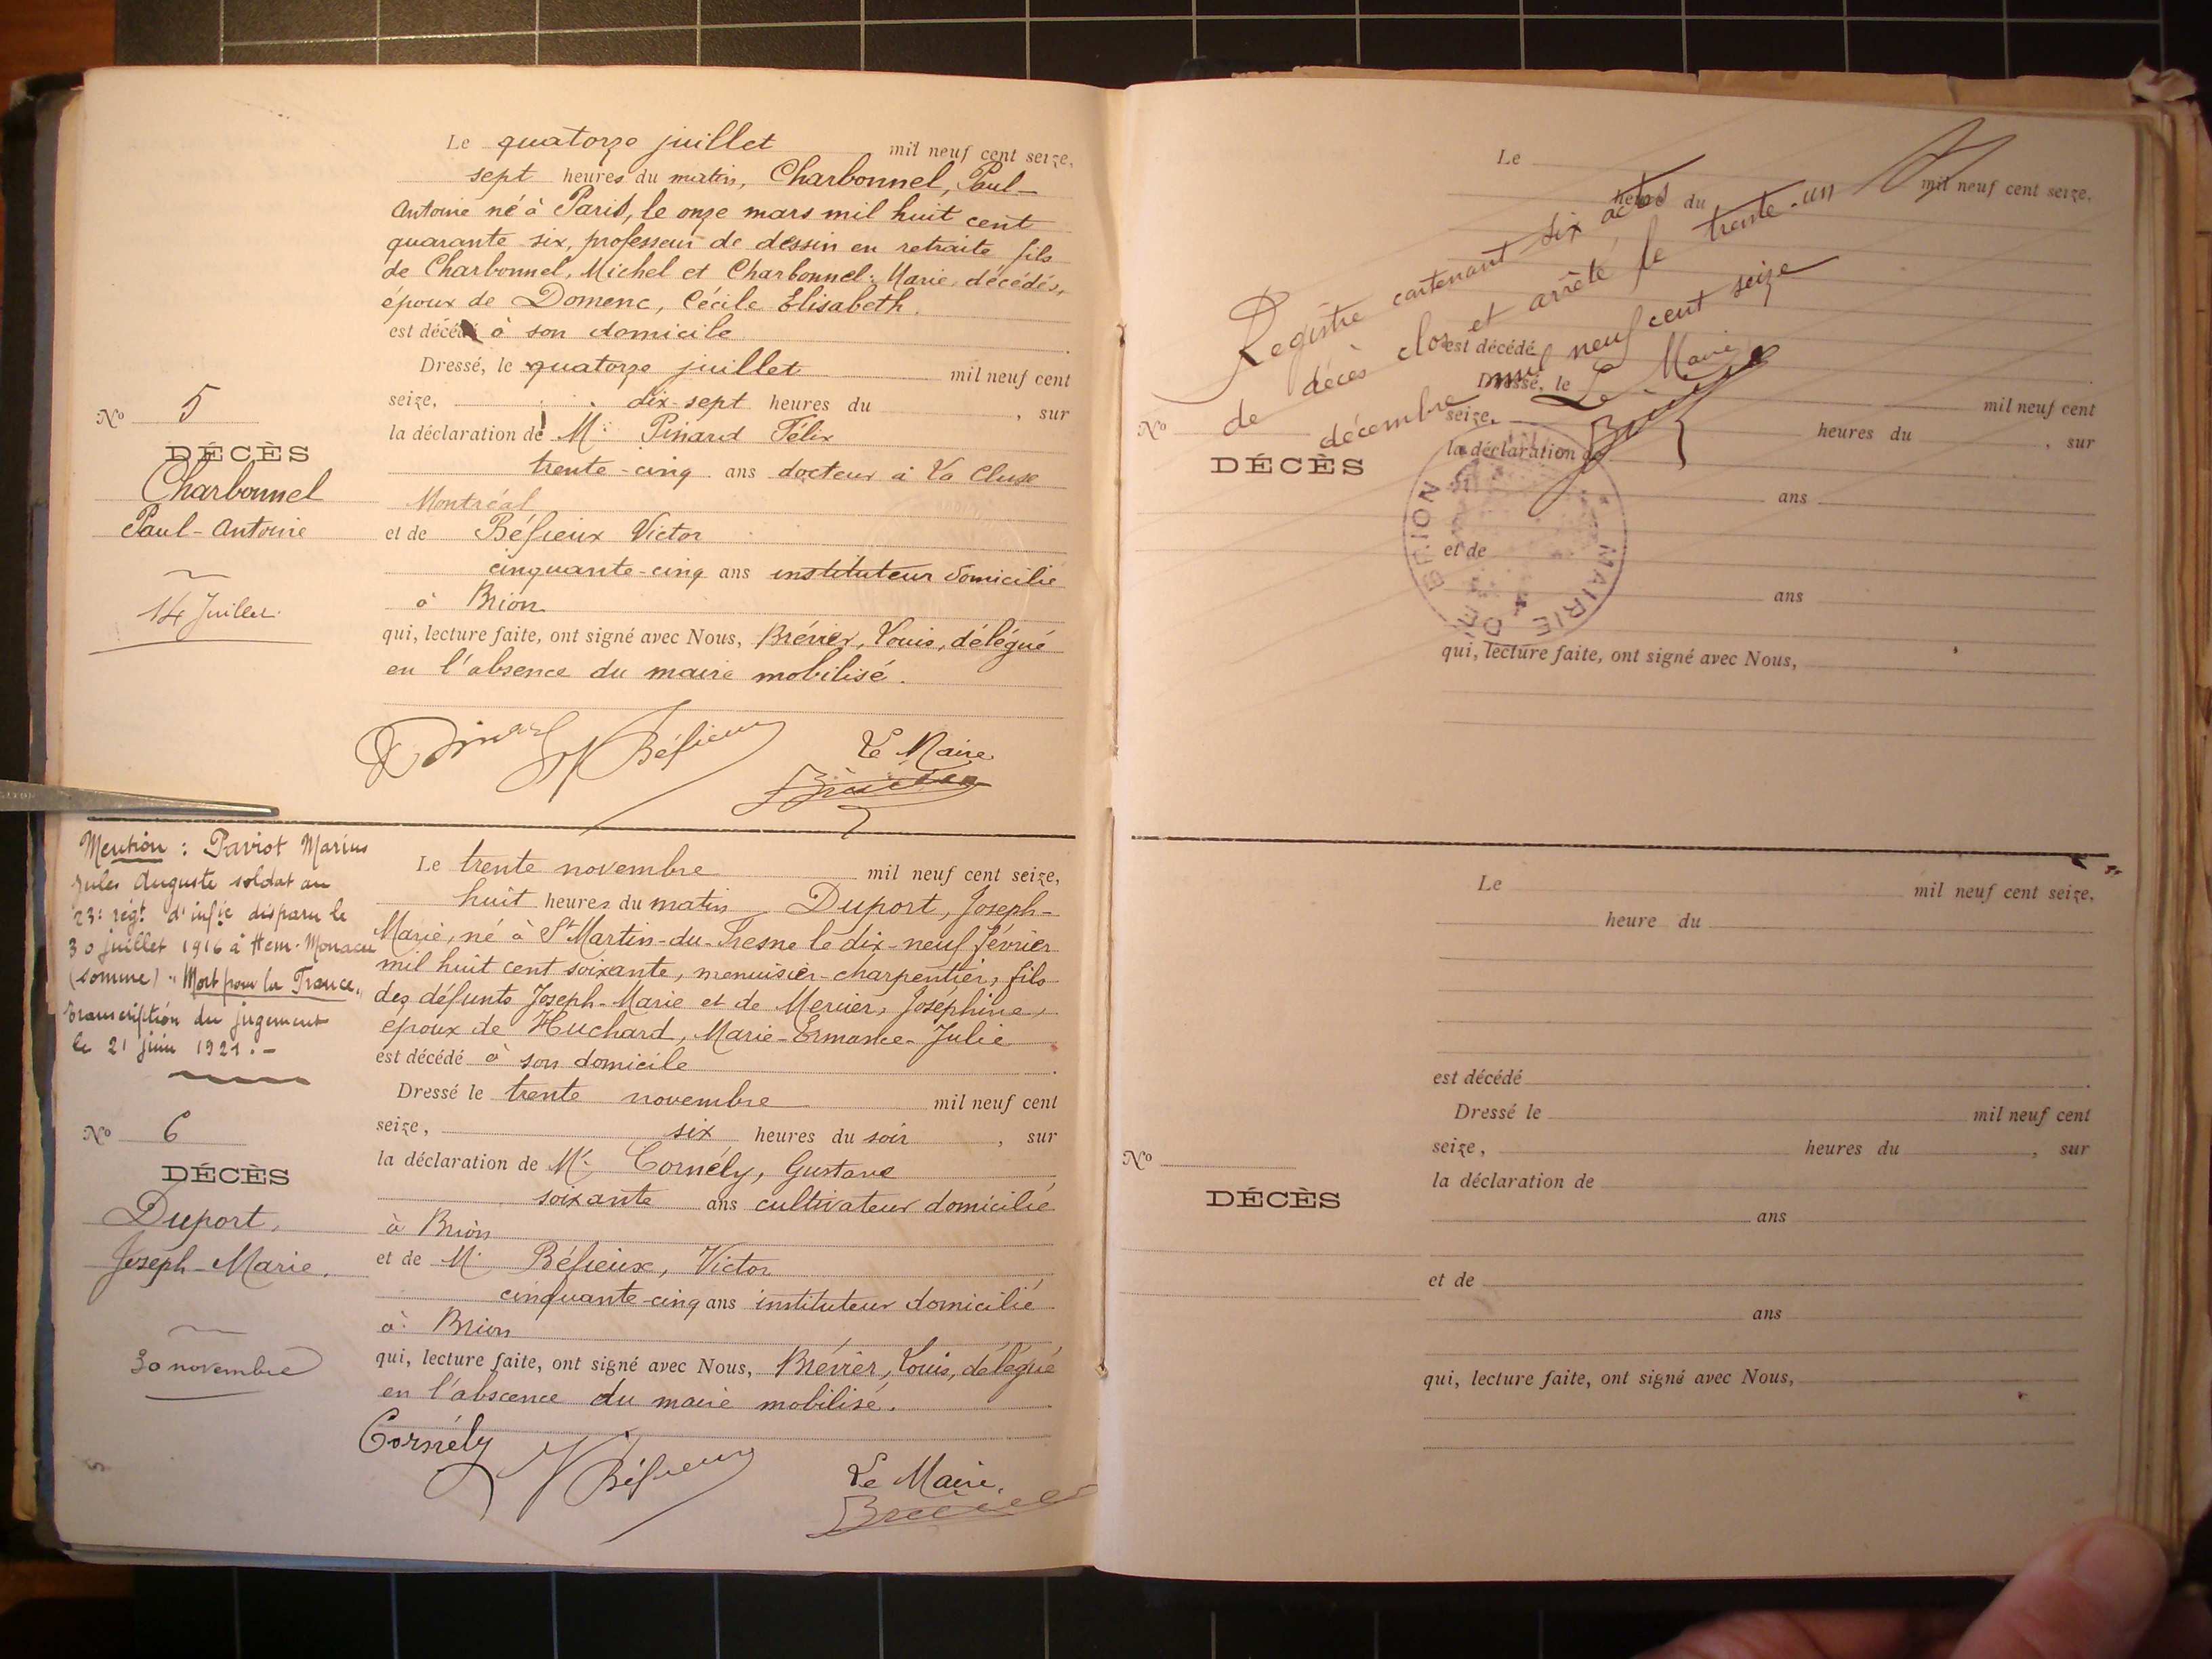 Le quatorze juillet mil neuf cent seize,
sept heures du matin, Charbonnel, Paul-
Antoine né à Paris, le onze mars mil huit cent
quarante six, professeur de dessin en retraite fils
de Charbonnel, Michel et Charbonnel Marie, décédés,
époux de Domenc, Cécile Elisabeth.
est décédé à son domicile
Dressé, le quatorze juillet mil neuf cent
seize, dix-sept heures du , sur
la déclaration de Mr Pinard Félix
trente-cinq ans docteur à La Cluse
Montréal
et de Béfieux Victor
cinquante-cinq ans instituteur domicilié
à Brion
qui, lecture faite, ont signé avec Nous, Brévier, Louis, délégué
en l'absence du maire mobilisé.
Béfieux Le Maire
No 5
DÉCÈS
Charbonnel
Paul-Antoine
14 Juillet
Mention : Paviot Marius
Jules Auguste soldat au
23e régt d'infie disparu le
30 juillet 1916 à Hem-Monacu
(Somme) "Mort pour la France"
transcription du jugement
le 21 juin 1921.-
Le trente novembre mil neuf cent seize,
huit heures du matin Duport, Joseph-
Marie, né à St Martin-du-Fresne le dix-neuf février
mil huit cent soixante, menuisier-charpentier, fils
des défunts Joseph-Marie et de Mercier, Joséphine,
époux de Huchard, Marie-Ermance-Julie
est décédé à son domicile
Dressé le trente novembre mil neuf cent
seize, six heures du soir , sur
la déclaration de Mr Cornély, Gustave
soixante ans cultivateur domicilié
à Brion
et de Mr Béfieux, Victor
cinquante-cinq ans instituteur domicilié
à Brion
qui, lecture faite, ont signé avec Nous, Brévier, Louis, délégué
en l'abscence du maire mobilisé.
Cornély Béfieux Le Maire,
No 6
DÉCÈS
Duport,
Joseph-Marie.
30 novembre
Le mil neuf cent seize,
du
est décédé
Dressé, le mil neuf cent
seize, heures du , sur
la déclaration de
ans
et de
ans
qui, lecture faite, ont signé avec Nous,
No
DÉCÈS
Registre contenant six actes
de décès clos et arrêté le trente-un
décembre mil neuf cent seize
Le Maire
MAIRIE DE BRION
Le mil neuf cent seize,
heure du
est décédé
Dressé le mil neuf cent
seize, heures du , sur
la déclaration de
ans
et de
ans
qui, lecture faite, ont signé avec Nous,
No
DÉCÈS